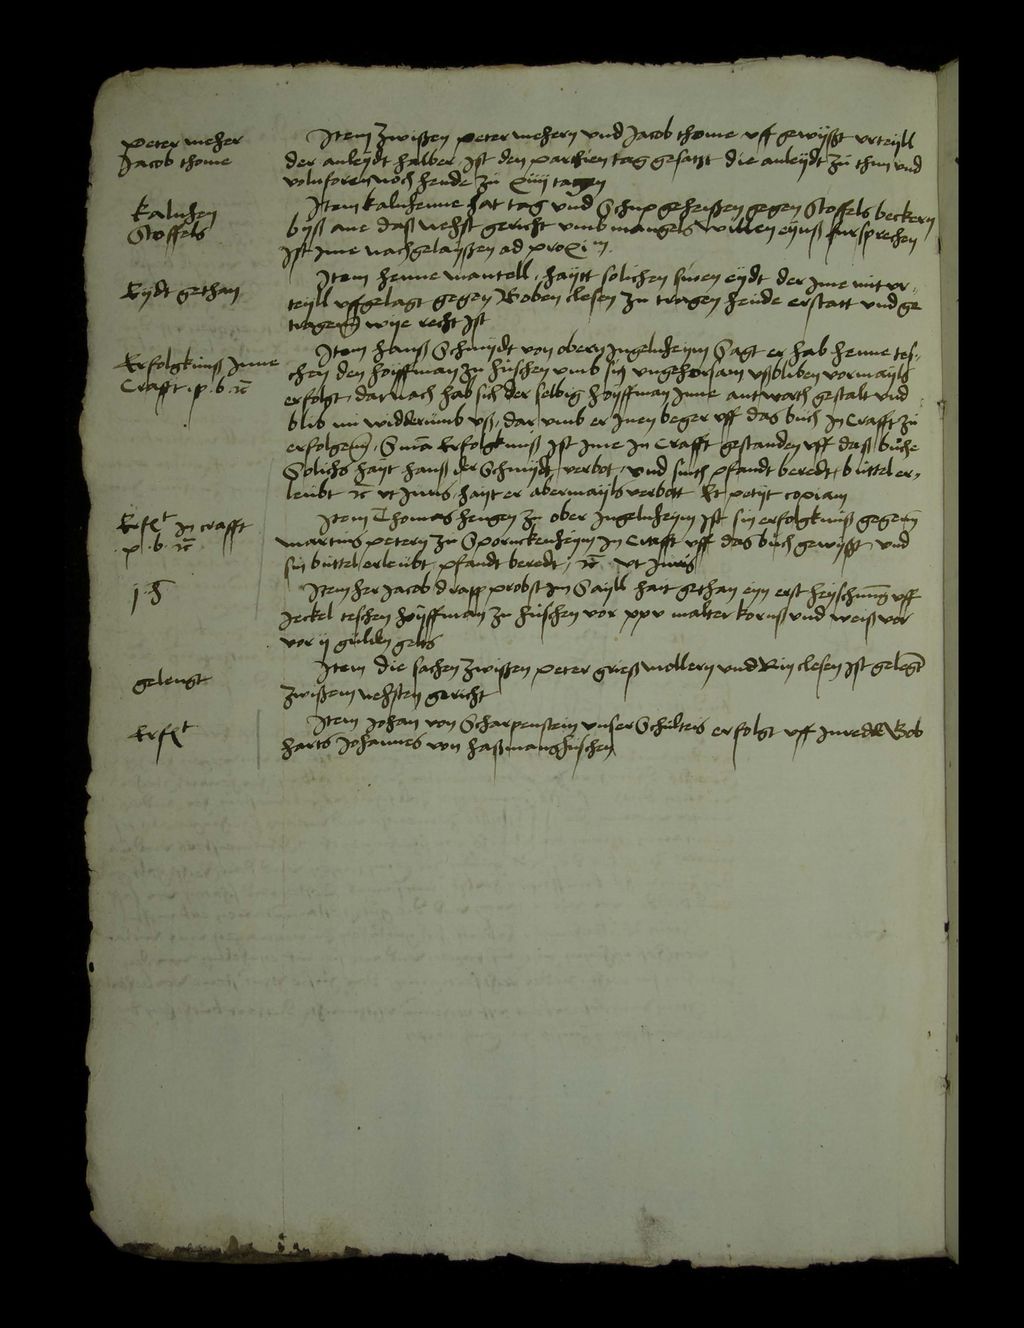 Peter meher
Jacob thome
Item zwissen Peter mehern und Jacob thome uff gewysst urteyll
der anleydt halber ist den parthien tag gesatzt die anleydt zu thun und
volnforen noch heude zu xiiii tagen
Kalnhen
Stoffels
Item kalnhenne hat tag und Schup geheissen gegen Stoffels beckern
byss ane dass nehst gericht umb mangels willen eynss fursprechen
ist ime nachgelayssen ad proxim
Eydt gethan
Item henne mantell haytt solichen sinen eydt der ime mit ur-
teyll uffgelagt gegen Boben clesen zu tragen heude erstatt und ge
tragen wye recht ist
Erfolgknuss Inne
Crafft p b
Item hanss Schmydt von obern Ingelnheym Sagt er hab henne tes-
chen den hoiffman zu huschen umb sin ungehorsam ussbliben vormayls
erfolgt dar nach hab sich der selbig hoyffman inne antworth gestalt und
blib im widderumb uss dar umb er inen beger uff das buch in Crafft zu
erfolgen Erfolgknuss ist ime in Crafft gestanden uff dass buche
Solichs hayt hanss der Schmydt verbot und pfandt beredt buttel er-
leubt ut Juris hayt er abermayls verbott Et petijt copiam
Erft in crafft
p b
Item Thomas hengen zu ober Ingelnheym ist sin erfolgknuss gegen
martins petern zu Sporrckenheym in Crafft uff das buch gewysst und
sin buttel erleubt pfandt beredt ut Juris
1 h
Item her Jacob drapp probst im Sayll hait gethan eyn erst heyschung uff
Jeckel teschen hoyffman zu huschen vor xxv malter kornss und weiss vor
vor ij gulden gelts
gelengt
Item die sachen zwissen peter griess mollern und Rin clesen ist gelengt
zwissem nehsten gericht
Erft
Item Johan von Scharpenstein unser Schulteis erfolgt uff inrede Bob
harts Johannes von hassmanghuschen